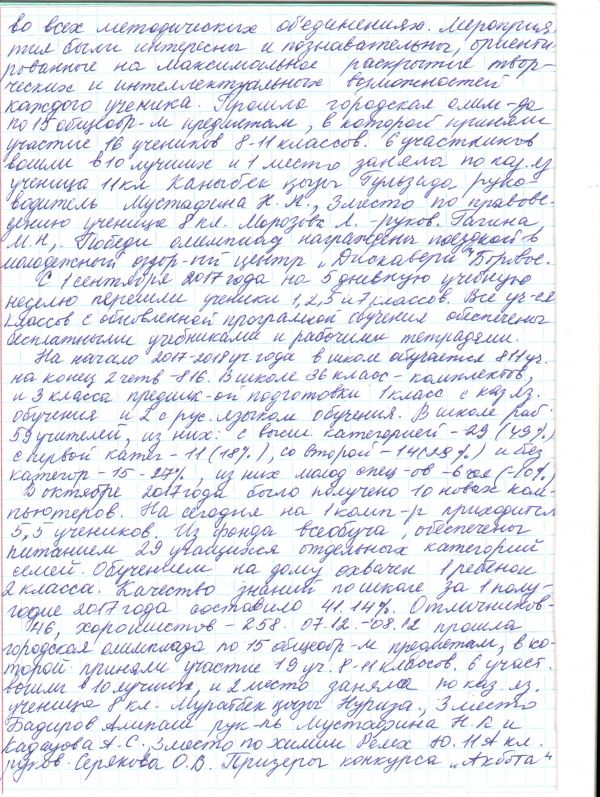 во всех методических объединениях. Мероприя
тия были интересны и познавательны, ориенти
рованные на максимальное раскрытие твор-
ческих и интеллектуальных возможностей
каждого ученика. Прошла городская олим-да
по 15 общеобр-м предметам, в которой приняли
участие 16 учеников 8-11 классов. 6 участников
вошли в 10 лучших и 1 место заняла по каз.яз
ученица 11кл Каныбек қызы Гульзада руко-
водитель Мустафина Н.К., 3место по правове-
дению ученица 8кл. Морозова Л. -руков. Гагина
М.Н. олимпиад награждены поездкой в
молодежный оздор-ый центр „Дискавери" Боровое.
С 1 сентября 2017 года на 5 дневную учебную
неделю перешли ученики 1,2,5 и 7 классов. Все уч-ся
классов с обновленной программой обучения обеспечены
бесплатными учебниками и рабочими тетрадями.
На начало 2017-2018 уч года в школе обучается 811 уч.
на конец 2 четв -816. В школе 36 класс-комплектов,
и 3 класса предшк-ой подготовки 1 класс с каз.яз.
обучения и 2 с рус. языком обучения. В школе раб.
59 учителей, из них: с высш категорией -29 (49%)
с первой катег - 11 (18%), со второй - 14 и без
категор - 15 - 27%, из них молод спец-ов -6 чел (-10%)
В октябре 2017 года было получено 10 новых ком-
пьютеров. На сегодня на 1 комп-р приходится
5,5 учеников. Из фонда всеобуча, обеспечены
питанием 29 учащихся отдельных категорий
семей. Обучением на дому охвачен 1 ребенок
2 класса. Качество знаний по школе за 1 полу-
годие 2017 года составило 41.14%. Отличников-
46, хорошистов - 258. 07.12 -08.12 прошла
городская олимпиада по 15 общеобр-м предметам, в ко-
торой приняли участие 19 уч. 8-11 классов. 6 участ.
вошли в 10 лучших, и 2 место заняла по каз.яз.
ученица 8 кл. Муратбек қызы Нуриза., 3 место
Бадиров рук-ль Мустафина Н.К и
А.С., 3место по химии Релех Ю. 11А кл.
руков. Серякова О.В. Призеры конкурса „Ақбота"